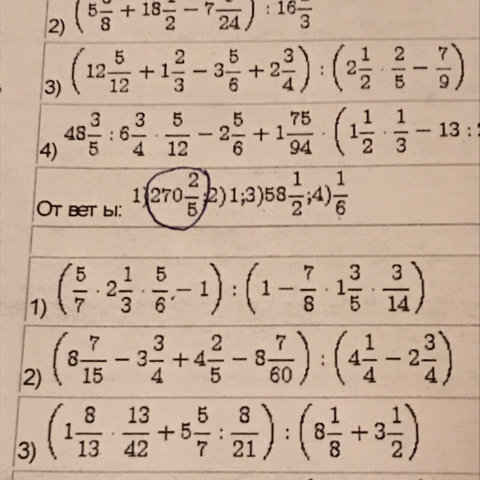 2) (5 /8 + 18 1/2 − 7 /24) : 16 /3
3) (12 5/12 + 1 2/3 − 3 5/6 + 2 3/4) : (2 1/2 · 2/5 − 7/9)
4) 48 3/5 : 6 3/4 · 5/12 − 2 5/6 + 1 75/94 · (1 1/2 · 1/3 − 13 :
От вет ы: 1)270 2/5;2)1;3)58 1/2;4)1/6
1) (5/7 · 2 1/3 · 5/6 − 1) : (1 − 7/8 · 1 3/5 · 3/14)
2) (8 7/15 − 3 3/4 + 4 2/5 − 8 7/60) : (4 1/4 − 2 3/4)
3) (1 8/13 · 13/42 + 5 5/7 : 8/21) : (8 1/8 + 3 1/2)